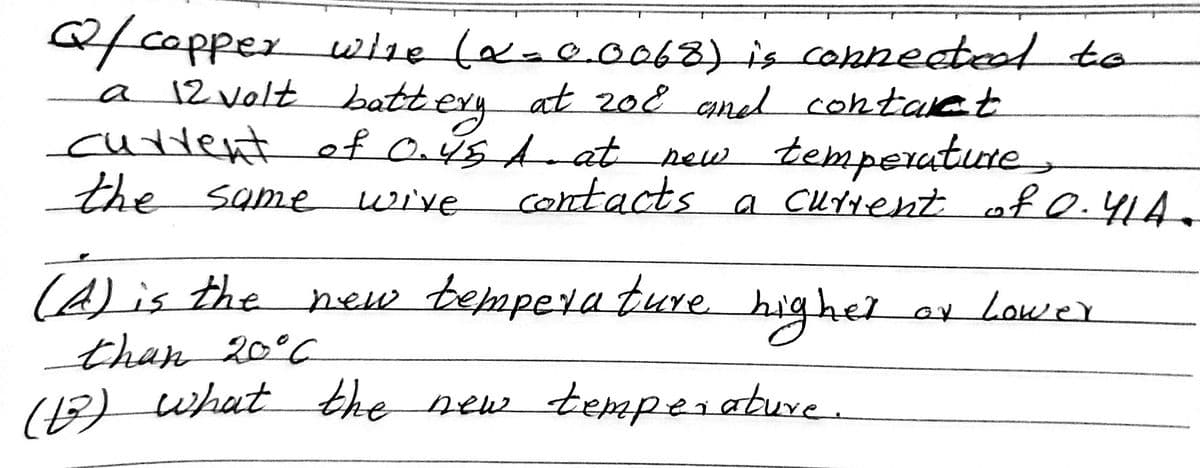 Q/ copper wire (α=0.0068) is connected to
a 12 volt battery at 20c and contact
current of 0.45 A. at new temperature,
the same wire contacts a current of 0.41A.
(A) is the new temperature higher or lower
than 20°C
(B) what the new temperature.